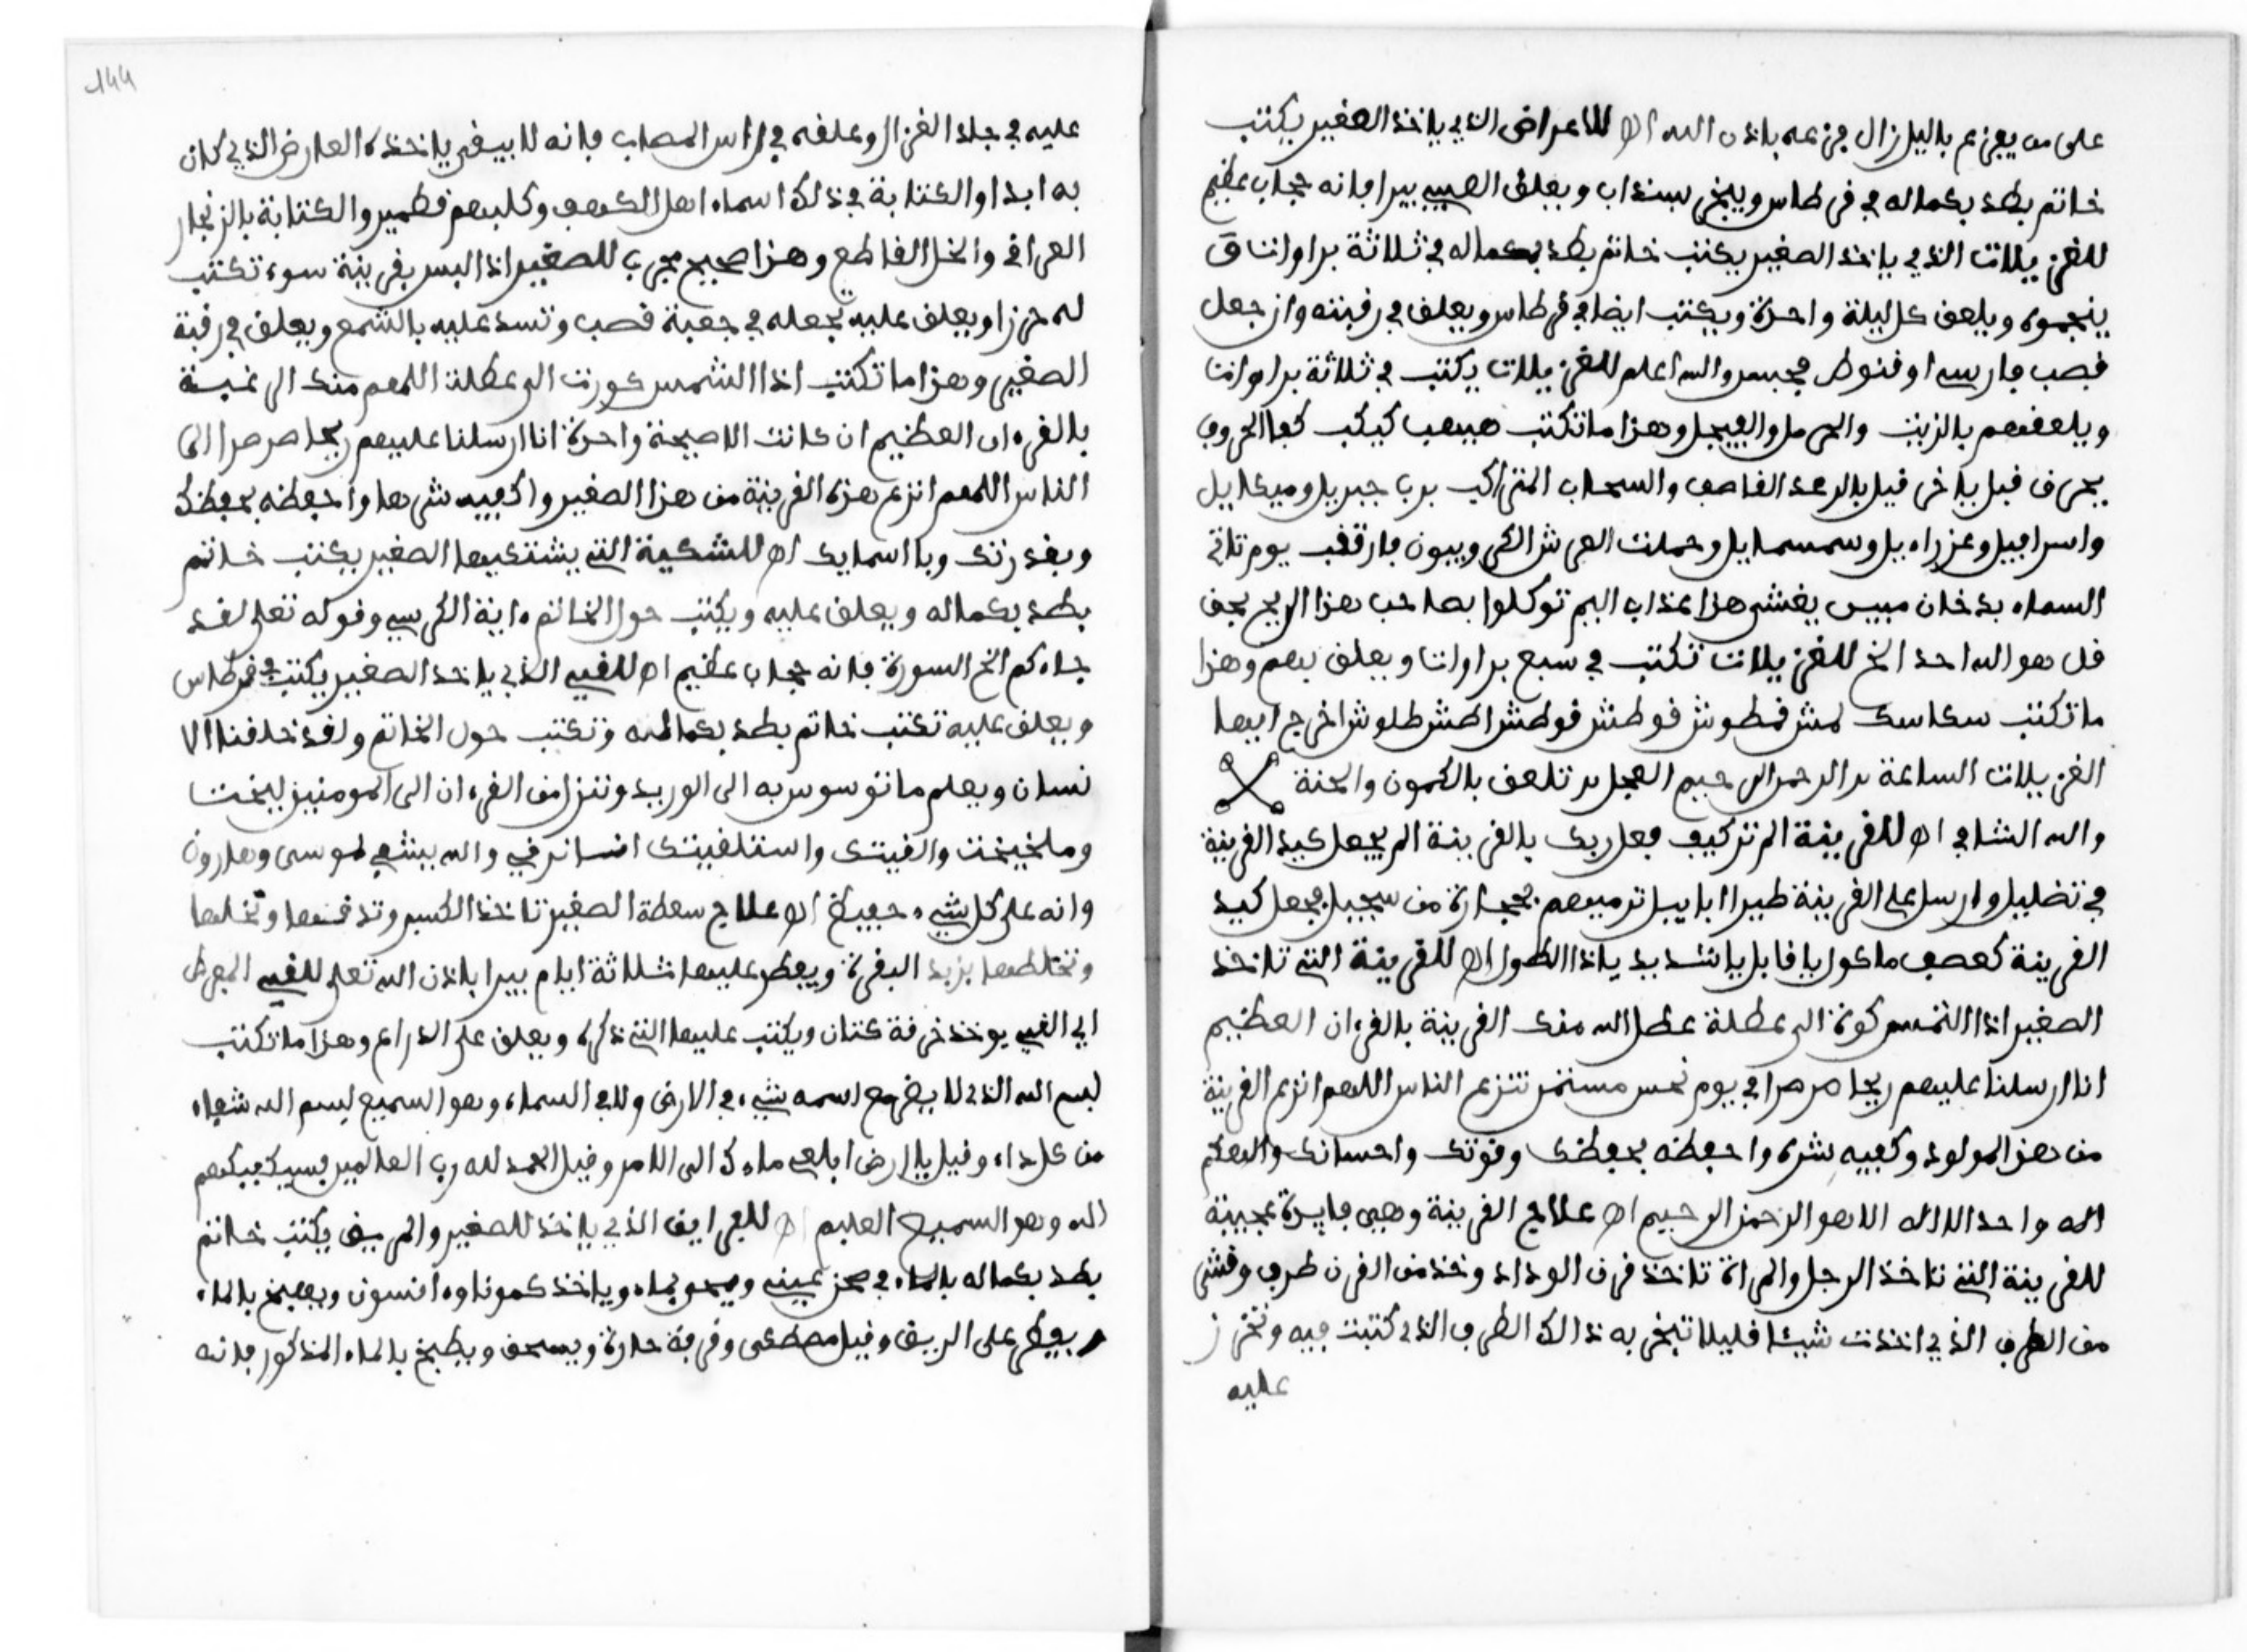 على من يفزع بالليل زال فزعه باذن الله اه للاعراض الذي ياخذ الصغير يكتب
خاتم بطد بكماله في قرطاس ويبخر بسنداب ويعلق الصبي يبرا فانه حجاب عظيم
للغزيلات الذي ياخذ الصغير يكتب خاتم بطد بكماله في ثلاثة براوات
ينجموه ويلعق كل ليلة واحدة ويكتب ايضا في قرطاس ويعلق في رقبته وان جعل
قصب فارسي او قنوط فحسن والله اعلم للغزيلات يكتب في ثلاثة براوات
ويلعقهم بالزيت والحرمل والفيجل وهذا ما تكتب هيهب كيكب كهالحروف
بحرف قيل ياخر قيل بالرعد القاصف والسحاب المتراكب برب جبريل وميكاييل
واسرافيل وعزراءيل وسمسمايل وحملت العرش الكروبيون فارتقب يوم تاتي
السماء بدخان مبين يغشى هذا عذاب اليم توكلوا بصاحب هذا الريح بحق
قل هو الله احد الخ للغزيلات تكتب في سبع براوات ويعلق بهم وهذا
ما تكتب سكاسك لمش قمطوش قوطش قوطش اطش طلوش اخرج ايها
الغزيلات الساعة الرحمن الرحيم العجل تلعق بالكمون والحنة
والله الشافي اه للقرينة الم تر كيف فعل ربك بالقرينة الم يجعل كيد القرينة
في تضليل وارسل على القرينة طيرا ابابيل ترميهم بحجارة من سجيل فجعل كيد
القرينة كعصف ماكول يا قابل يا شديد يا ذا الطول اه للقرينة التي تاخذ
الصغير اذا الشمس كورة الى عطلة عطل الله منك القرينة بالقرءان العظيم
انا ارسلنا عليهم ريحا صرصرا في يوم نحس مستمر تنزع الناس اللهم انزع القرينة
من هذ المولود وكفيه شره واحفظه بحفظك وقوتك واحسانك والهكم
اله واحد لا اله الا هو الرحمن الرحيم اه علاج القرينة وهي فايدة عجيبة
للقرينة التي تاخذ الرجل والمراة تاخذ قرن الوداد وخذ من القرن طرف وقشر
من الطرف الذي اخذت شيئا قليلا تبخر به ذالك الطرف الذي كتبت فيه وتخرز
عليه
144
عليه في جلد الغزال وعلقه في راس المصاب فانه لا يبقى ياخذه العارض الذي كان
به ابدا والكتابة في ذلك اسماء اهل الكهف وكلبهم قطمير والكتابة بالزنجار
العراقي والخل القاطع وهذا صحيح مجرب للصغير اذا البس بقرينة سوء تكتب
له حرزا ويعلق عليه تجعله في جعبة قصب وتسد عليه بالشمع ويعلق في رقبة
الصغير وهذا ما تكتب اذا الشمس كورت الى عطلت اللهم منك
بالقرءان العظيم ان كانت الا صيحة واحدة انا ارسلنا عليهم ريحا صرصرا الى
الناس اللهم انزع هذه القرينة من هذا الصغير واكفيه شرها واحفظه بحفظك
وبقدرتك وبا اسمايك اه للشكية التي يشتكيها الصغير يكتب خاتم
بطد بكماله ويعلق عليه ويكتب حول الخاتم ءاية الكرسي وقوله تعلى لقد
جاءكم الخ السورة فانه حجاب عظيم اه للقي الذي ياخذ الصغير يكتب في قرطاس
ويعلق عليه تكتب خاتم بطد بكماله وتكتب حول الخاتم ولقد خلقنا الا
نسان ويعلم ما توسوس به الى الوريد وننزل من القرءان الى المومنين
والله يشفي لموسى وهارون
وانه على كل شيء حفيظ اه علاج سعطة الصغير تاخذ الكسبر وتدقها وتنخلها
وتخلطها بزبد البقرة ويفطر عليها ثلاثة ايام يبرا باذن الله تعلى للقي المفرط
اي القي يوخذ خرقة كتان ويكتب عليها التي ذكره ويعلق على الذراع وهذا ما تكتب
بسم الله الذي لا يضر مع اسمه شيء في الارض ولا في السماء وهو السميع بسم الله شفاء
من كل داء وقيل يا ارض ابلعي ماءك الى الامر وقيل الحمد لله رب العالمين فسيكفيكهم
الله وهو السميع العليم اه للعرايق الذي ياخذ للصغير والمريض يكتب خاتم
بطد بكماله ويمحو بماء وياخذ كمونا وءانسون ويعجن بالماء
ويفطر على الريق وقيل مصطكى وقرفة حارة ويسحق ويطبخ بالماء المذكور فانه